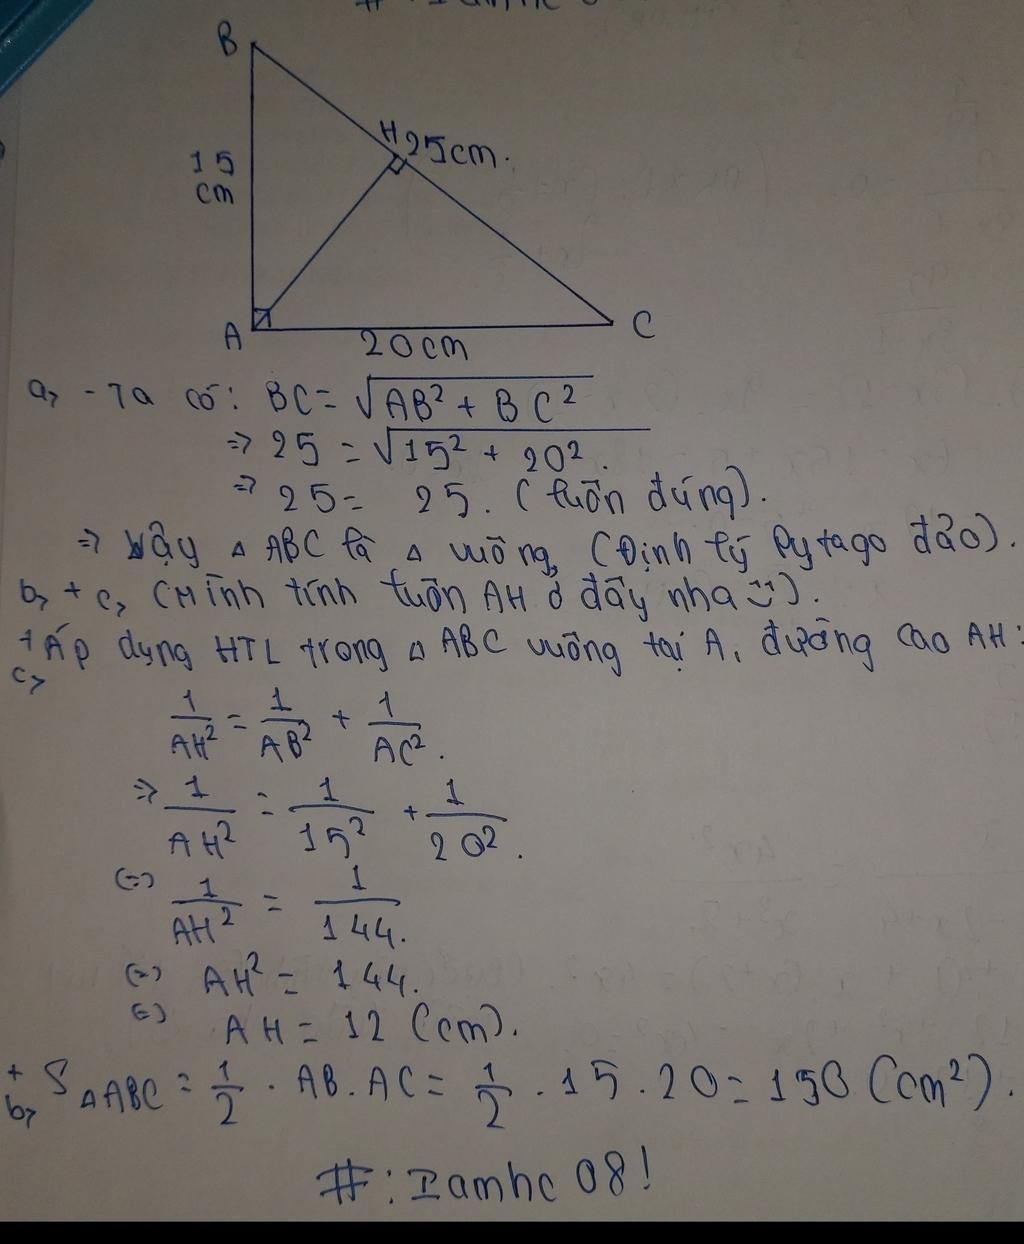 B
H 25cm.
15
cm
A
C
20cm
a, - Ta có: BC = √AB² + BC²
=> 25 = √15² + 20².
=> 25 = 25. (luôn đúng).
=> Vậy △ ABC là △ vuông, (Định lý Pytago đảo).
b, + c, (Mình tính luôn AH ở đây nha :)).
+ Áp dụng HTL trong △ ABC vuông tại A, đường cao AH:
c,
1/AH² = 1/AB² + 1/AC².
=> 1/AH² = 1/15² + 1/20².
(=) 1/AH² = 1/144.
(=) AH² = 144.
(=) AH = 12 (cm).
+ b, S△ABC = 1/2 . AB. AC = 1/2 . 15 . 20 = 150 (cm²).
#: Iamhc 08!